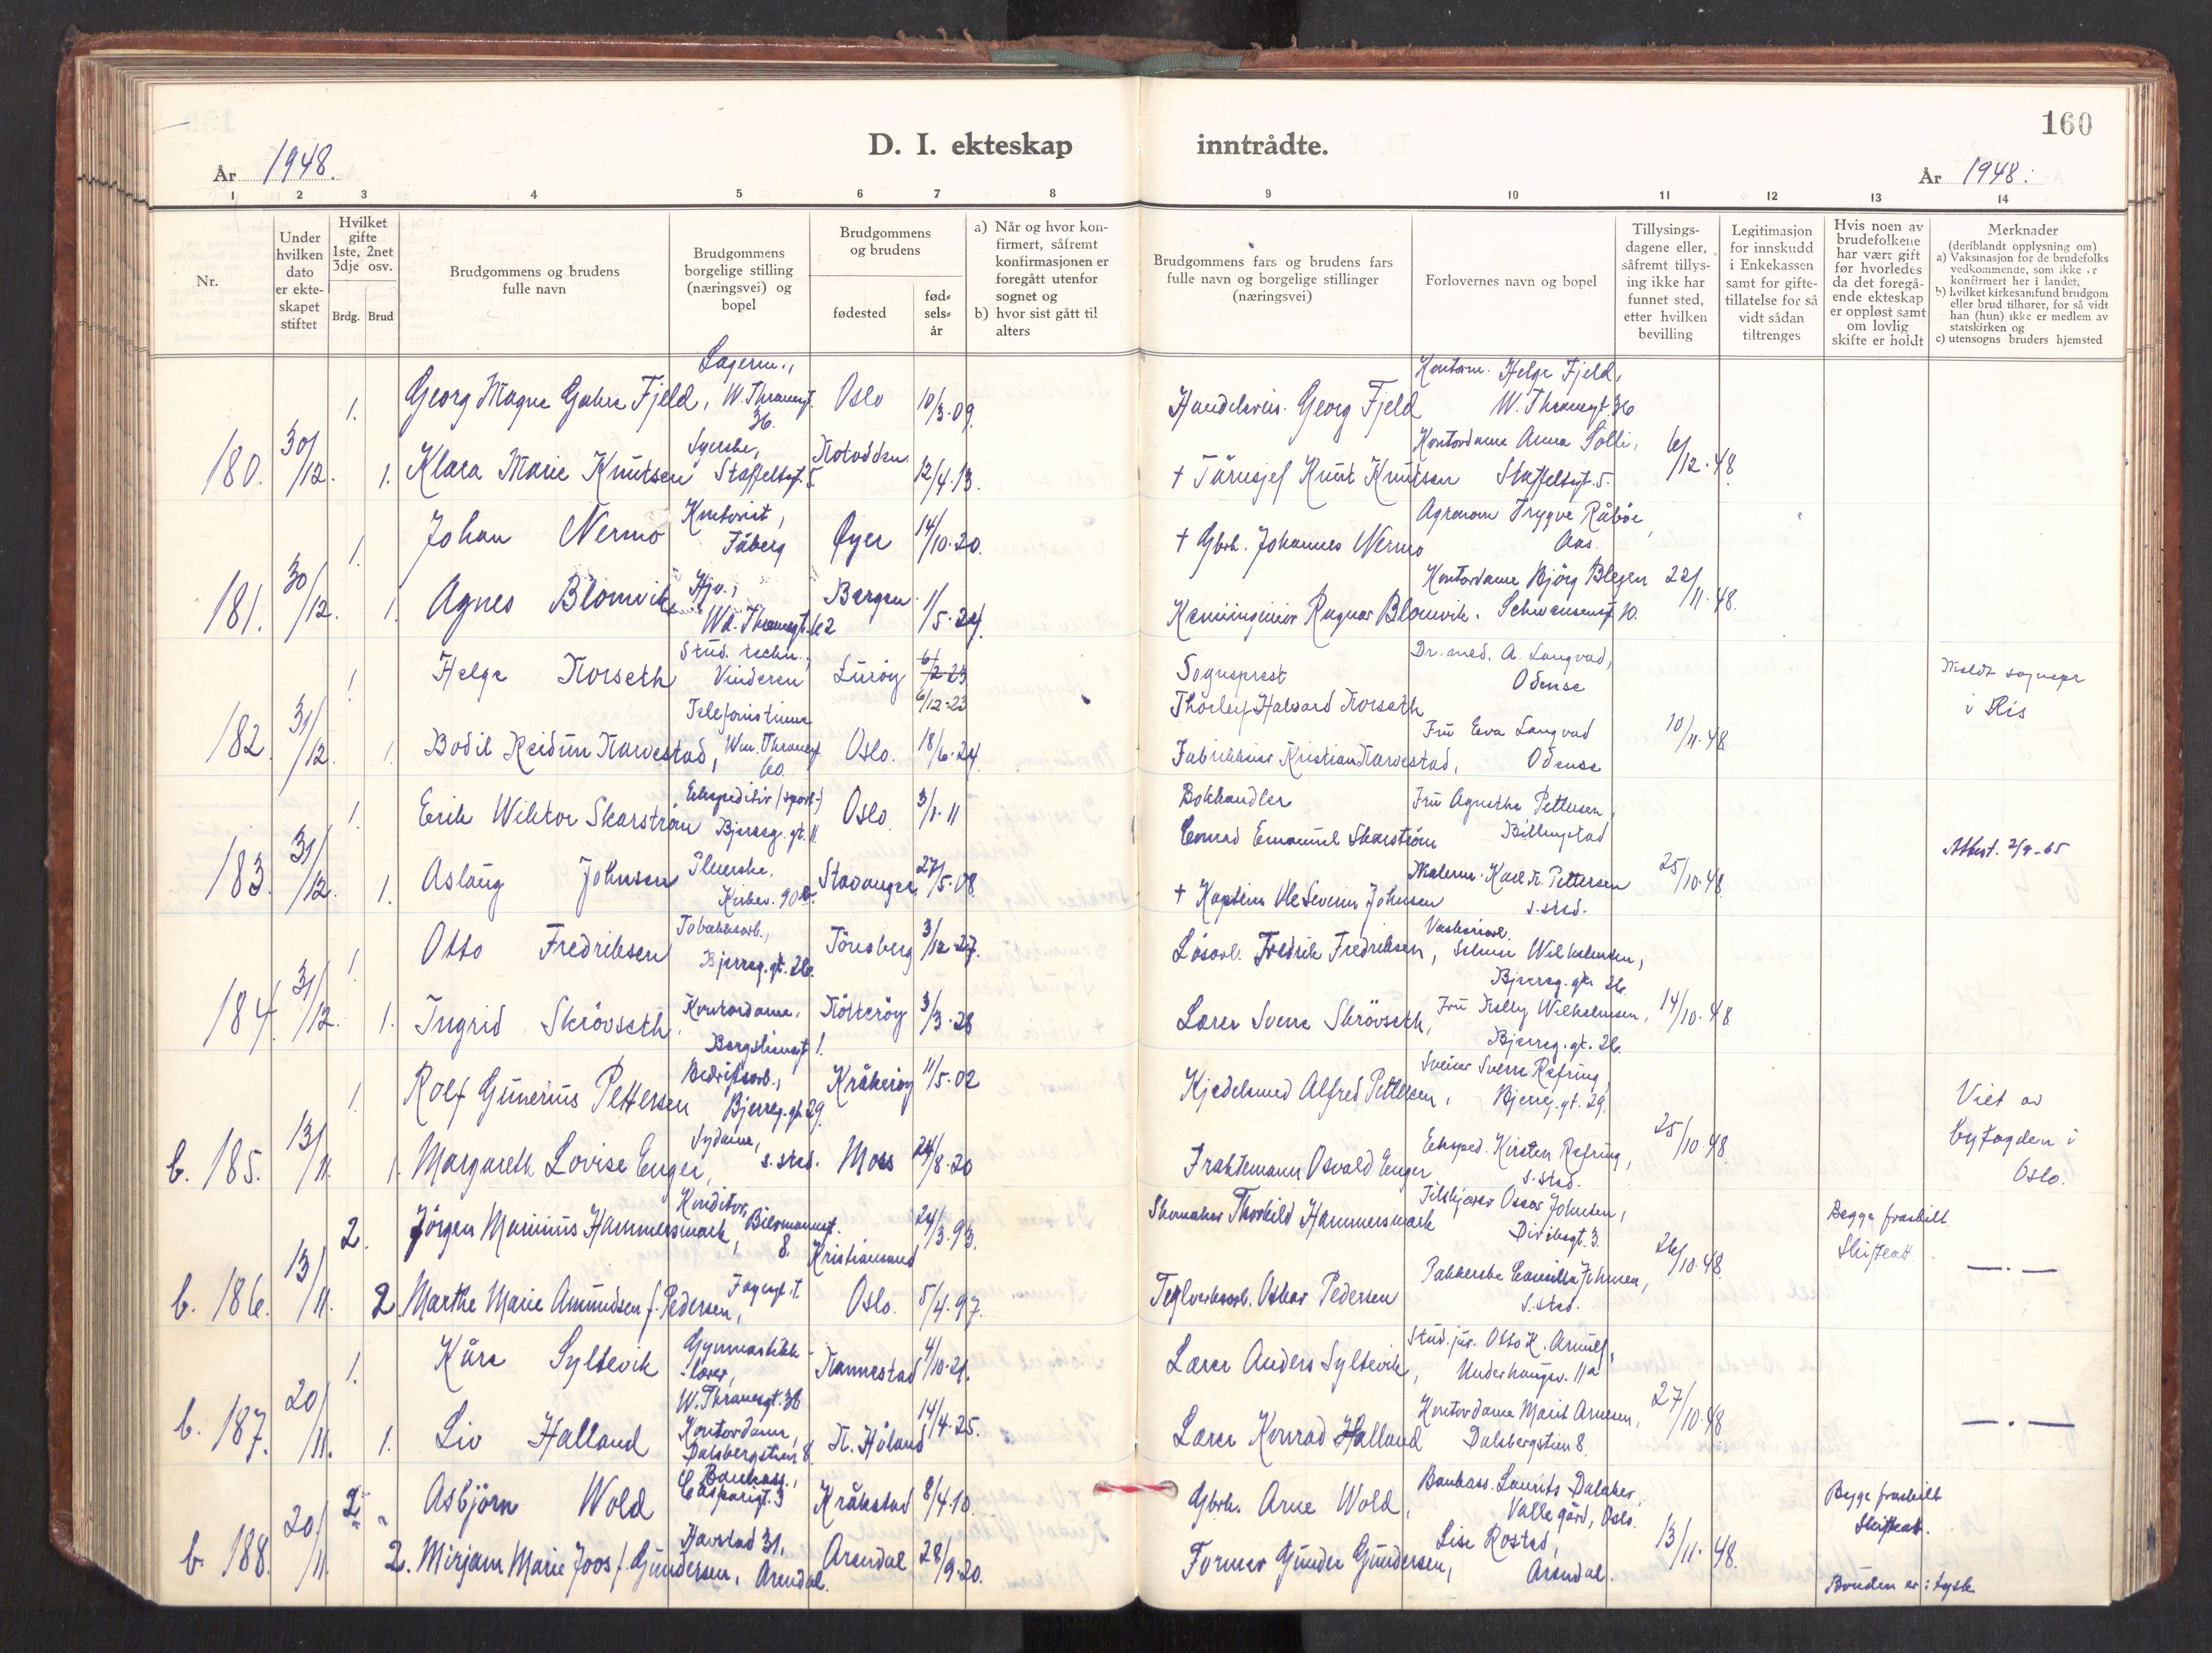 160
D. I. ekteskap inntrådte.
År 1948.
År 1948.
1 2 3 4 5 6 7 8 9 10 11 12 13 14
Nr.
Under hvilken dato er ekteskapet stiftet
Hvilket gifte 1ste, 2net 3dje osv.
Brdg. Brud
Brudgommens og brudens fulle navn
Brudgommens borgelige stilling (næringsvei) og bopel
Brudgommens og brudens
fødested
fød-sels-år
a) Når og hvor konfirmert, såfremt konfirmasjonen er foregått utenfor sognet og
b) hvor sist gått til alters
Brudgommens fars og brudens fars fulle navn og borgelige stillinger (næringsvei)
Forlovernes navn og bopel
Tillysings-dagene eller, såfremt tillys-ing ikke har funnet sted, etter hvilken bevilling
Legitimasjon for innskudd i Enkekassen samt for gifte-tillatelse for så vidt sådan tiltrenges
Hvis noen av brudefolkene har vært gift før hvorledes da det foregå-ende ekteskap er oppløst samt om lovlig skifte er holdt
Merknader
(deriblandt opplysning om)
a) Vaksinasjon for de brudefolks vedkommende, som ikke er konfirmert her i landet,
b) hvilket kirkesamfund brudgom eller brud tilhører, for så vidt han (hun) ikke er medlem av statskirken og
c) utensogns bruders hjemsted
1. Georg Magne Fjeld, Lagerm., W. Thranesgt. 36. Oslo 10/3.09. Georg Fjeld Kontorm. Helge Fjeld, W. Thranesgt. 36
180. 30/12. 1. Klara Marie Knutsen Syerske, Staffeltsgt. 5 Notodden 12/4.13. † Knut Knutsen Kontordame Anna Solli, Staffeltsgt. 5. 6/12.48
1. Johan Nermo Fåberg Øyer 14/10.20. † Gbrk. Johannes Nermo Agronom Trygve Råbøe, Aas.
181. 30/12. 1. Agnes Blomvik Hjv., Wd. Thranesgt. 62 Bergen 1/5.24. Kemiingeniør Ragnar Blomvik. Kontordame Bjørg Blegen Schwensensgt. 10. 22/11.48.
1. Helge Norseth Stud. techn., Vinderen Lurøy 6/2 23 6/12.23 Sogneprest Thorleif Halvard Norseth Dr. med. A. Langvad, Odense Meldt sognepr i Ris
182. 31/12. 1. Bodil Reidun Narvestad, Telefonistinne Wm. Thranesgt 60. Oslo. 18/6.24. Kristian Narvestad, Fru Eva Langvad Odense 10/11.48
1. Erik Wiktor Skarström Ekspeditør (sport-) Bjerreg. gt. 11. Oslo. 3/1.11 Bokhandler Conrad Emanuel Skarström Fru Agnethe Pettersen, Billingstad
183. 31/12. 1. Aslaug Johnsen Pleierske. Kirkev. 90 Stavanger 27/5.08. † Kaptein Ole Severin Johnsen Malerm. Karl Pettersen s. sted. 25/10.48 Attest. 2/9-65
1. Otto Fredriksen Tobakksarb., Bjerreg. gt. 26. Tönsberg 3/12.27. Løsarb. Fredrik Fredriksen, Vaskeriarb. Selma Wilhelmsen, Bjerreg. gt. 26.
184. 31/12. 1. Ingrid Skrövseth. Kontordame. Bergslienst. 1. Nötteröy 3/3.28 Lærer Svein Skrövseth, Fru Nelly Wilhelmsen, Bjerreg. gt. 26. 14/10.48
1. Rolf Gunerius Pettersen Bedriftsarb., Bjerreg. gt. 29. Kråkeröy 11/5.02 Kjedelsmed Alfred Pettersen, Sveiser Sverre Refring, Bjerreg. gt. 29.
b. 185. 13/11. 1. Margareth Lovise Enger, Sydame, s. sted. Moss 24/8.20 Fraktemann Osvald Enger Eksped. Kirsten Refring, s. sted. 25/10.48 Viet av byfogden i Oslo.
2. Jörgen Marinius Hammersmark, Konditor, Biermannsgt. 8. Kristiansund 24/3.93. Skomaker Thorkild Hammersmark Filskjærer Oscar Johnsen, Diriksgt. 3. Begge fraskilt Skifteatt.
b. 186. 13/11. 2 Marthe Marie Amundsen f. Pedersen, Fogengt. 1. Oslo. 5/4.97. Teglverksarb. Oskar Pedersen Pakkerske Camilla Johnsen, s. sted. 26/10.48. — . —
1. Kåre Syltevik Gymnastikk-lærer, W. Thranesgt. 38 Nannestad 4/10.21. Lærer Anders Syltevik, Stud. jur. Otto K. Underhaugsv. 11a
b. 187. 20/11. 1. Liv Halland Kontordame, Dalsbergstien 8. N. Höland 14/4.25. Lærer Konrad Halland Kontordame Marit Arnesen, Dalsbergstien 8. 27/10.48 — . —
2. Asbjörn Wold Bankass., Casparigt. 3 Kråkstad 8/4.10. Gbrk. Arne Wold, Bankass. Laurits Dalaker, Valle gård, Oslo. Begge fraskilt Skifteatt.
b. 188. 20/11. 2. Mirjam Marie Joos f. Gundersen, Havstad 31, Arendal. Arendal 28/9.20. Former Gunder Gundersen, Lise Rostad, Arendal. 13/11.48. Bruden er tysk